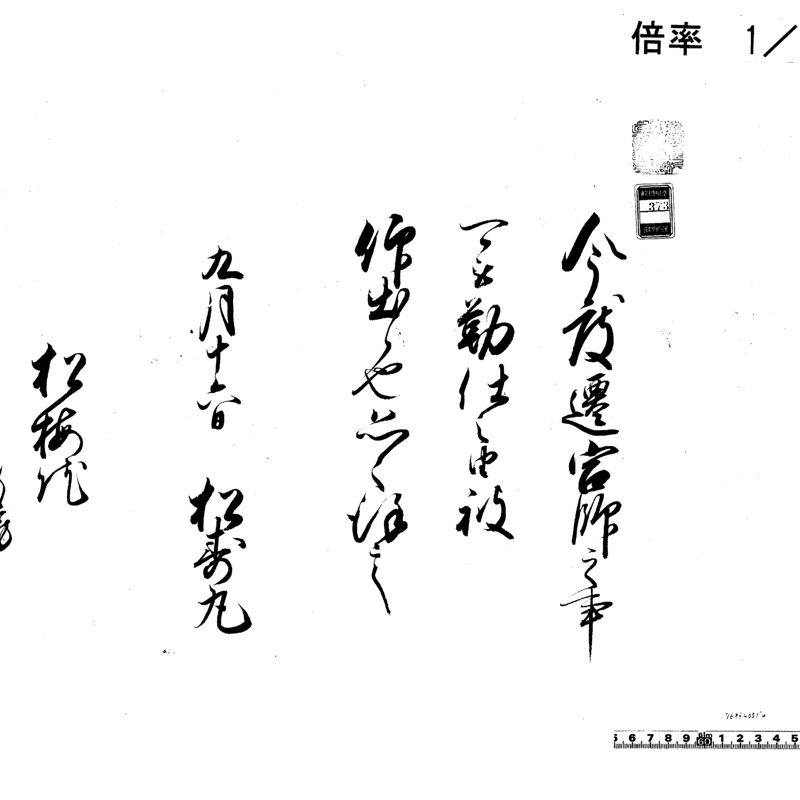 倍率 1/
373
今度遷宮師之事
勤仕之由被
仰出候也恐々謹言
九月十六日 松寿丸
松梅院
6 7 8 9 60 1 2 3 4 5